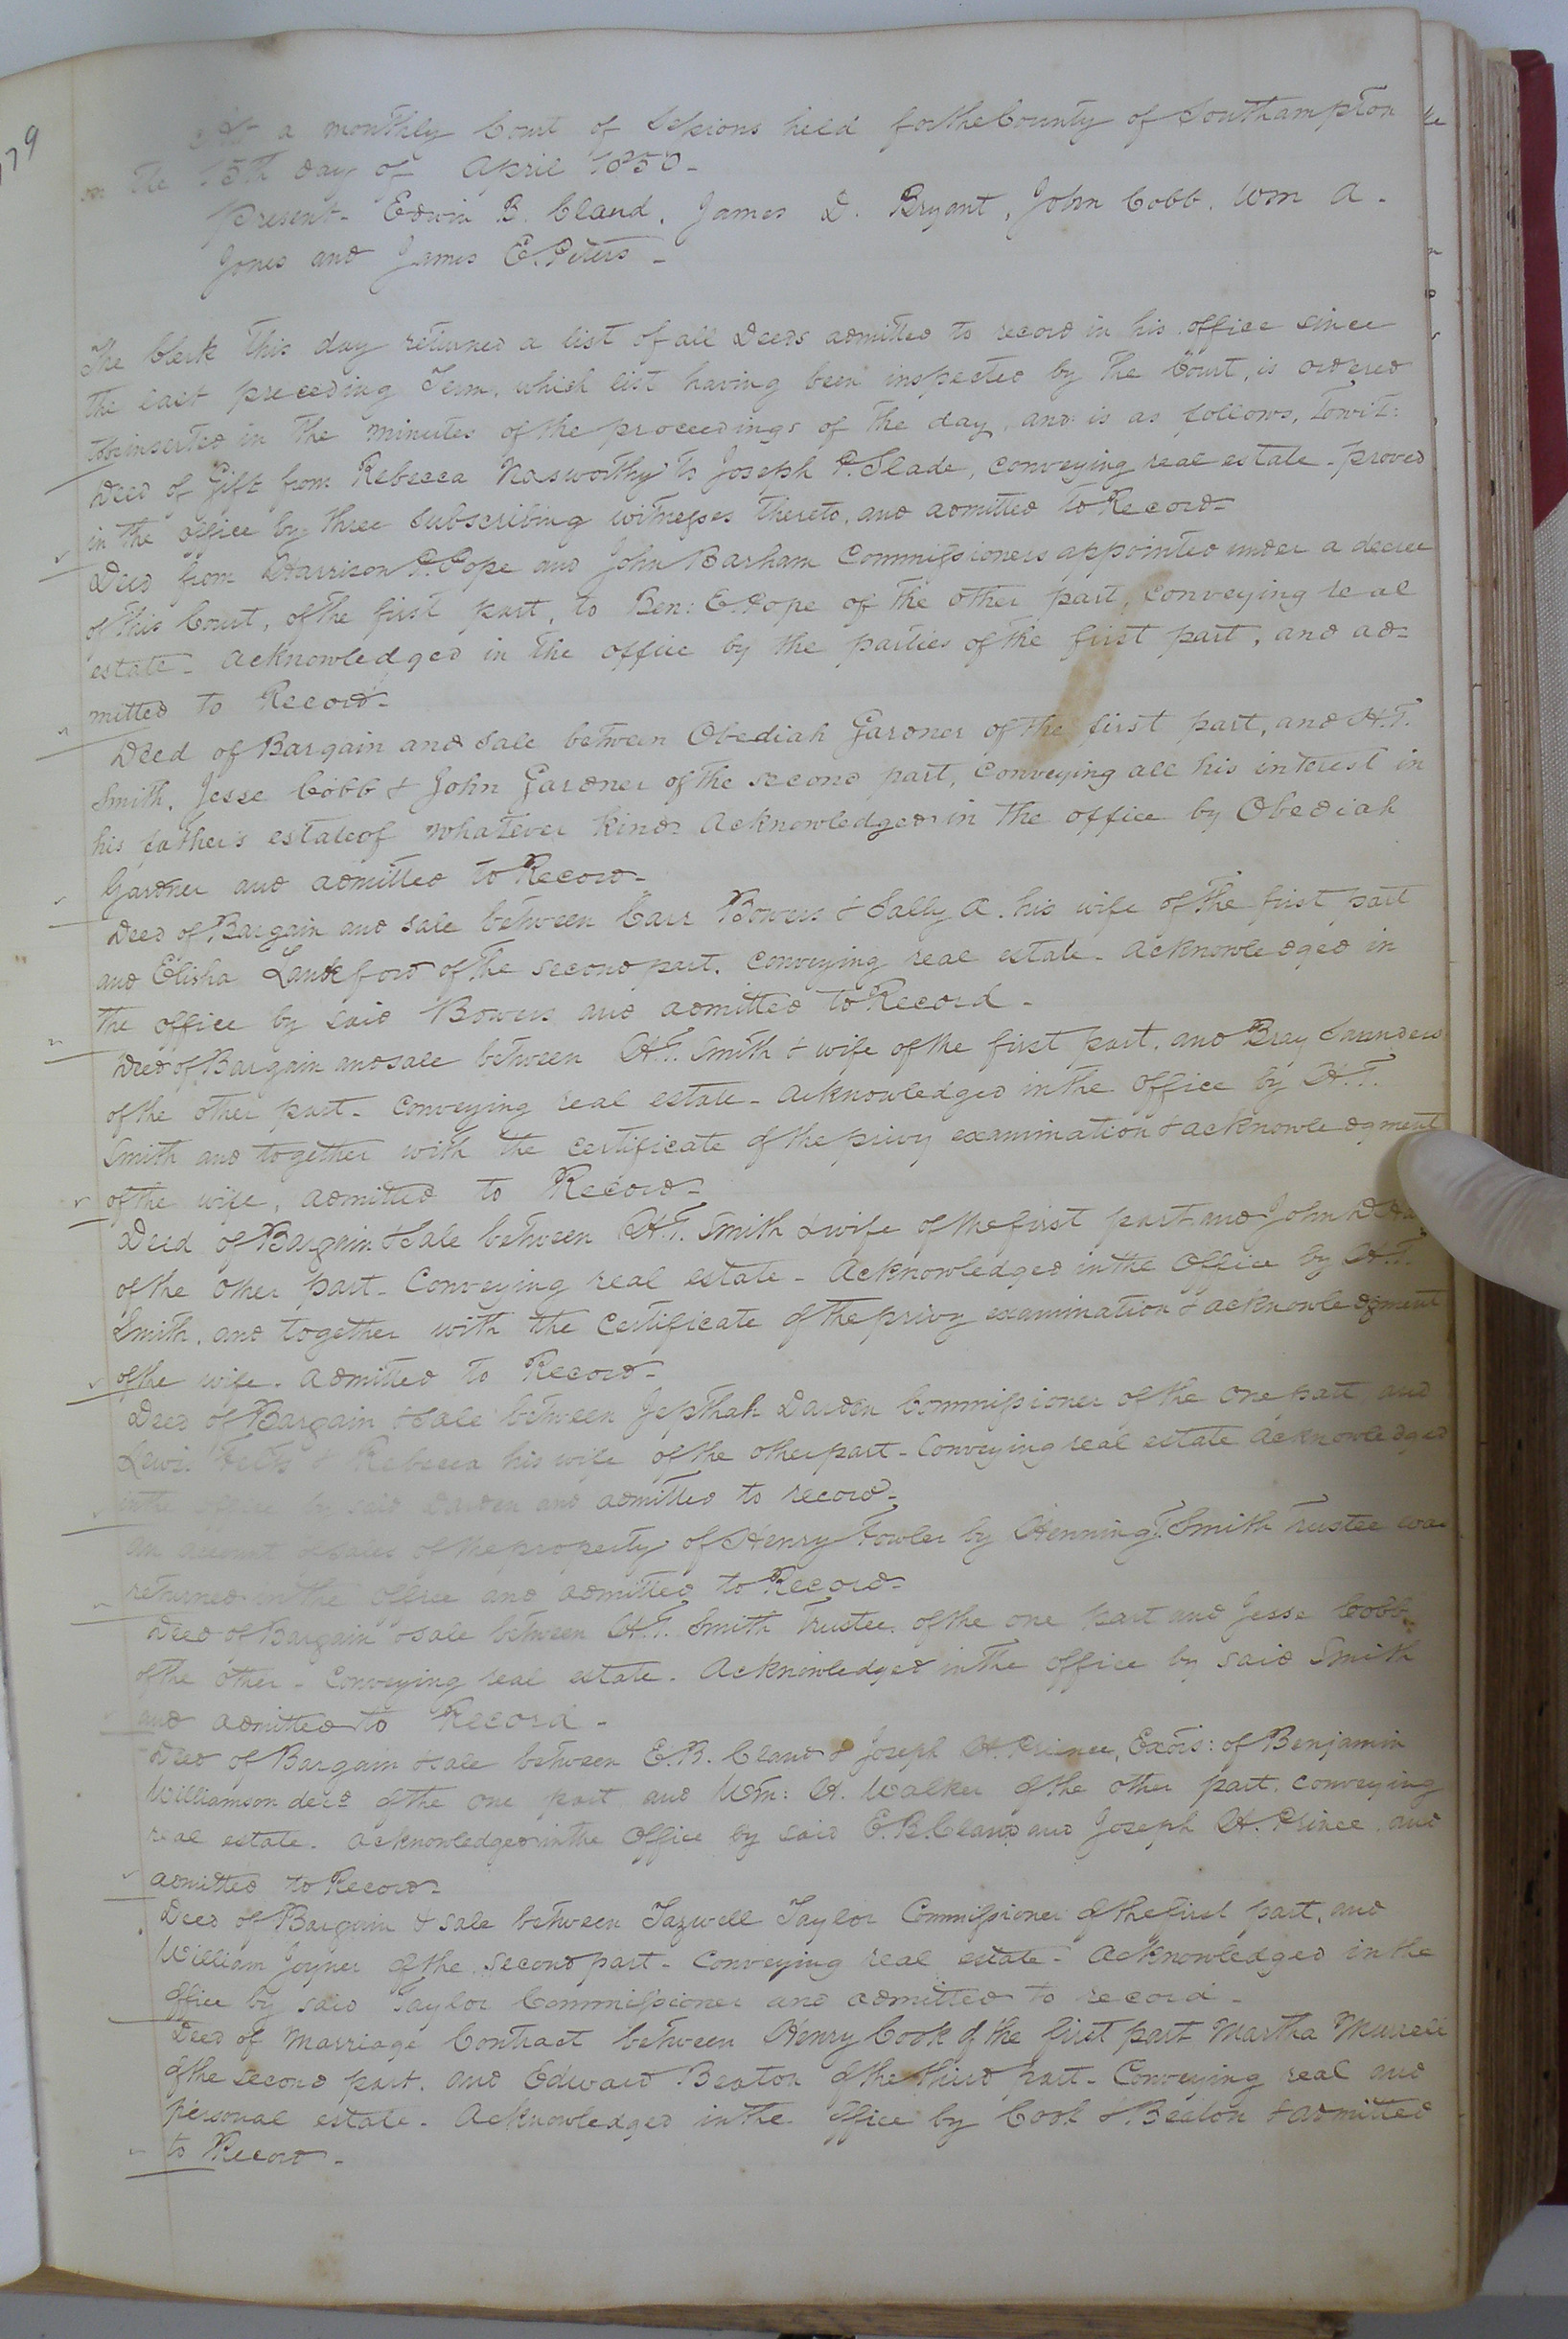 179
At a monthly Court of Sessions held for the County of Southampton
on the 15th day of April 1850-
Present- Edwin B. Claud, James D. Bryant, John Cobb, Wm A.
Jones and James E. Peters-
The Clerk this day returned a list of all Deeds admitted to record in his office since
the last preceding Term, which list having been inspected by the Court, is ordered
to be inserted in the minutes of the proceedings of the day, and is as follows, Towit:
Deed of Gift from Rebecca Nasworthy to Joseph P. Slade, conveying real estate- proved
in the office by three subscribing witnesses thereto, and admitted to Record-
Deed from Harrison P. Pope and John Barham Commissioners appointed under a decree
of this Court, of the first part, to Ben: E. Pope of the other part, conveying real
estate- acknowledged in the office by the parties of the first part, and ad=
mitted to Record-
Deed of Bargain and sale between Obediah Gardner of the first part, and H.T.
Smith, Jesse Cobb & John Gardner of the second part, conveying all his interest in
his father's estate of whatever kind- Acknowledged in the office by Obediah
Gardner and admitted to Record-
Deed of Bargain and sale between Carr Bowers & Sally A. his wife of the first part
and Elisha Lankford of the second part, conveying real estate- acknowledged in
the office by said Bowers and admitted to Record-
Deed of Bargain and sale between H.T. Smith & wife of the first part, and Bray Saunders
of the other part- conveying real estate- acknowledged in the office by H.T.
Smith and together with the certificate of the privy examination & acknowledgment
of the wife, admitted to Record-
Deed of Bargain & Sale between H.T. Smith & wife of the first part and John D.
of the other part- Conveying real estate- Acknowledged in the Office by H.T.
Smith, and together with the certificate of the privy examination & acknowledgment
of the wife- admitted to Record-
Deed of Bargain & Sale between Jepthah Darden Commissioner of the one part and
Lewis Felts & Rebecca his wife of the other part- Conveying real estate acknowledged
in the office by said Darden and admitted to record-
An account of sales of the property of Henry Fowler by Henning T. Smith Trustee was
returned in the office and admitted to Record-
Deed of Bargain & sale between H.T. Smith Trustee, of the one part and Jesse Cobb
of the other- Conveying real estate- Acknowledged in the office by said Smith
and admitted to Record-
Deed of Bargain & sale between E.B. Claud & Joseph H. Prince, Exors: of Benjamin
Williamson decd of the one part and Wm: H. Walker of the other part, conveying
real estate- acknowledged in the Office by said E.B. Claud and Joseph H. Prince, and
admitted to Record-
Deed of Bargain & sale between Tazwell Taylor Commissioner of the first part, and
William Joyner of the second part- Conveying real estate- Acknowledged in the
office by said Taylor Commissioner and admitted to record-
Deed of Marriage Contract between Henry Cook of the first part Martha Murrell
of the second part, and Edward Beaton of the third part- Conveying real and
personal estate- Acknowledged in the office by Cook & Beaton & admitted
to Record-